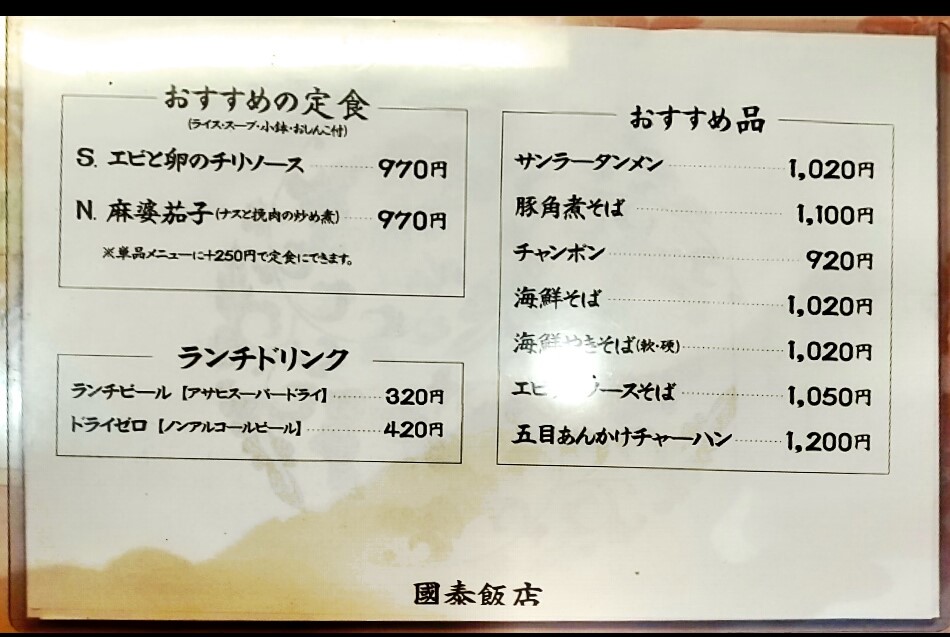 おすすめの定食
(ライス・スープ・小鉢・おしんこ付)
S. エビと卵のチリソース 970円
N. 麻婆茄子(ナスと挽肉の炒め煮) 970円
※単品メニューに+250円で定食にできます。
ランチドリンク
ランチビール【アサヒスーパードライ】 320円
ドライゼロ【ノンアルコールビール】 420円
おすすめ品
サンラータンメン 1,020円
豚角煮そば 1,100円
チャンポン 920円
海鮮そば 1,020円
海鮮やきそば(軟・硬) 1,020円
エビ ソースそば 1,050円
五目あんかけチャーハン 1,200円
國泰飯店